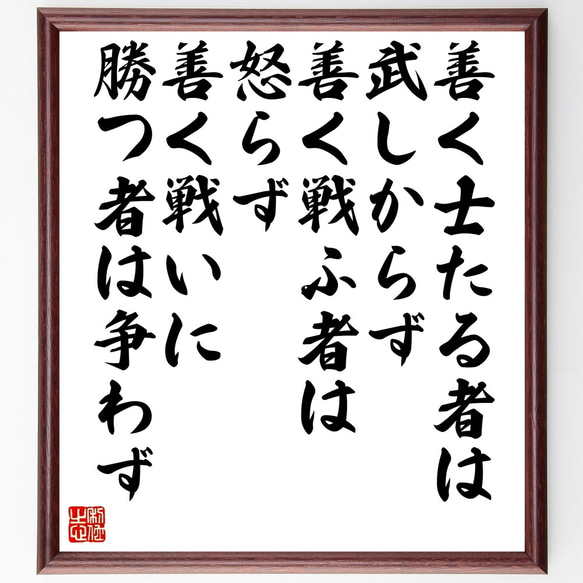 善く士たる者は
武しからず
善く戦ふ者は
怒らず
善く戦いに
勝つ者は争わず